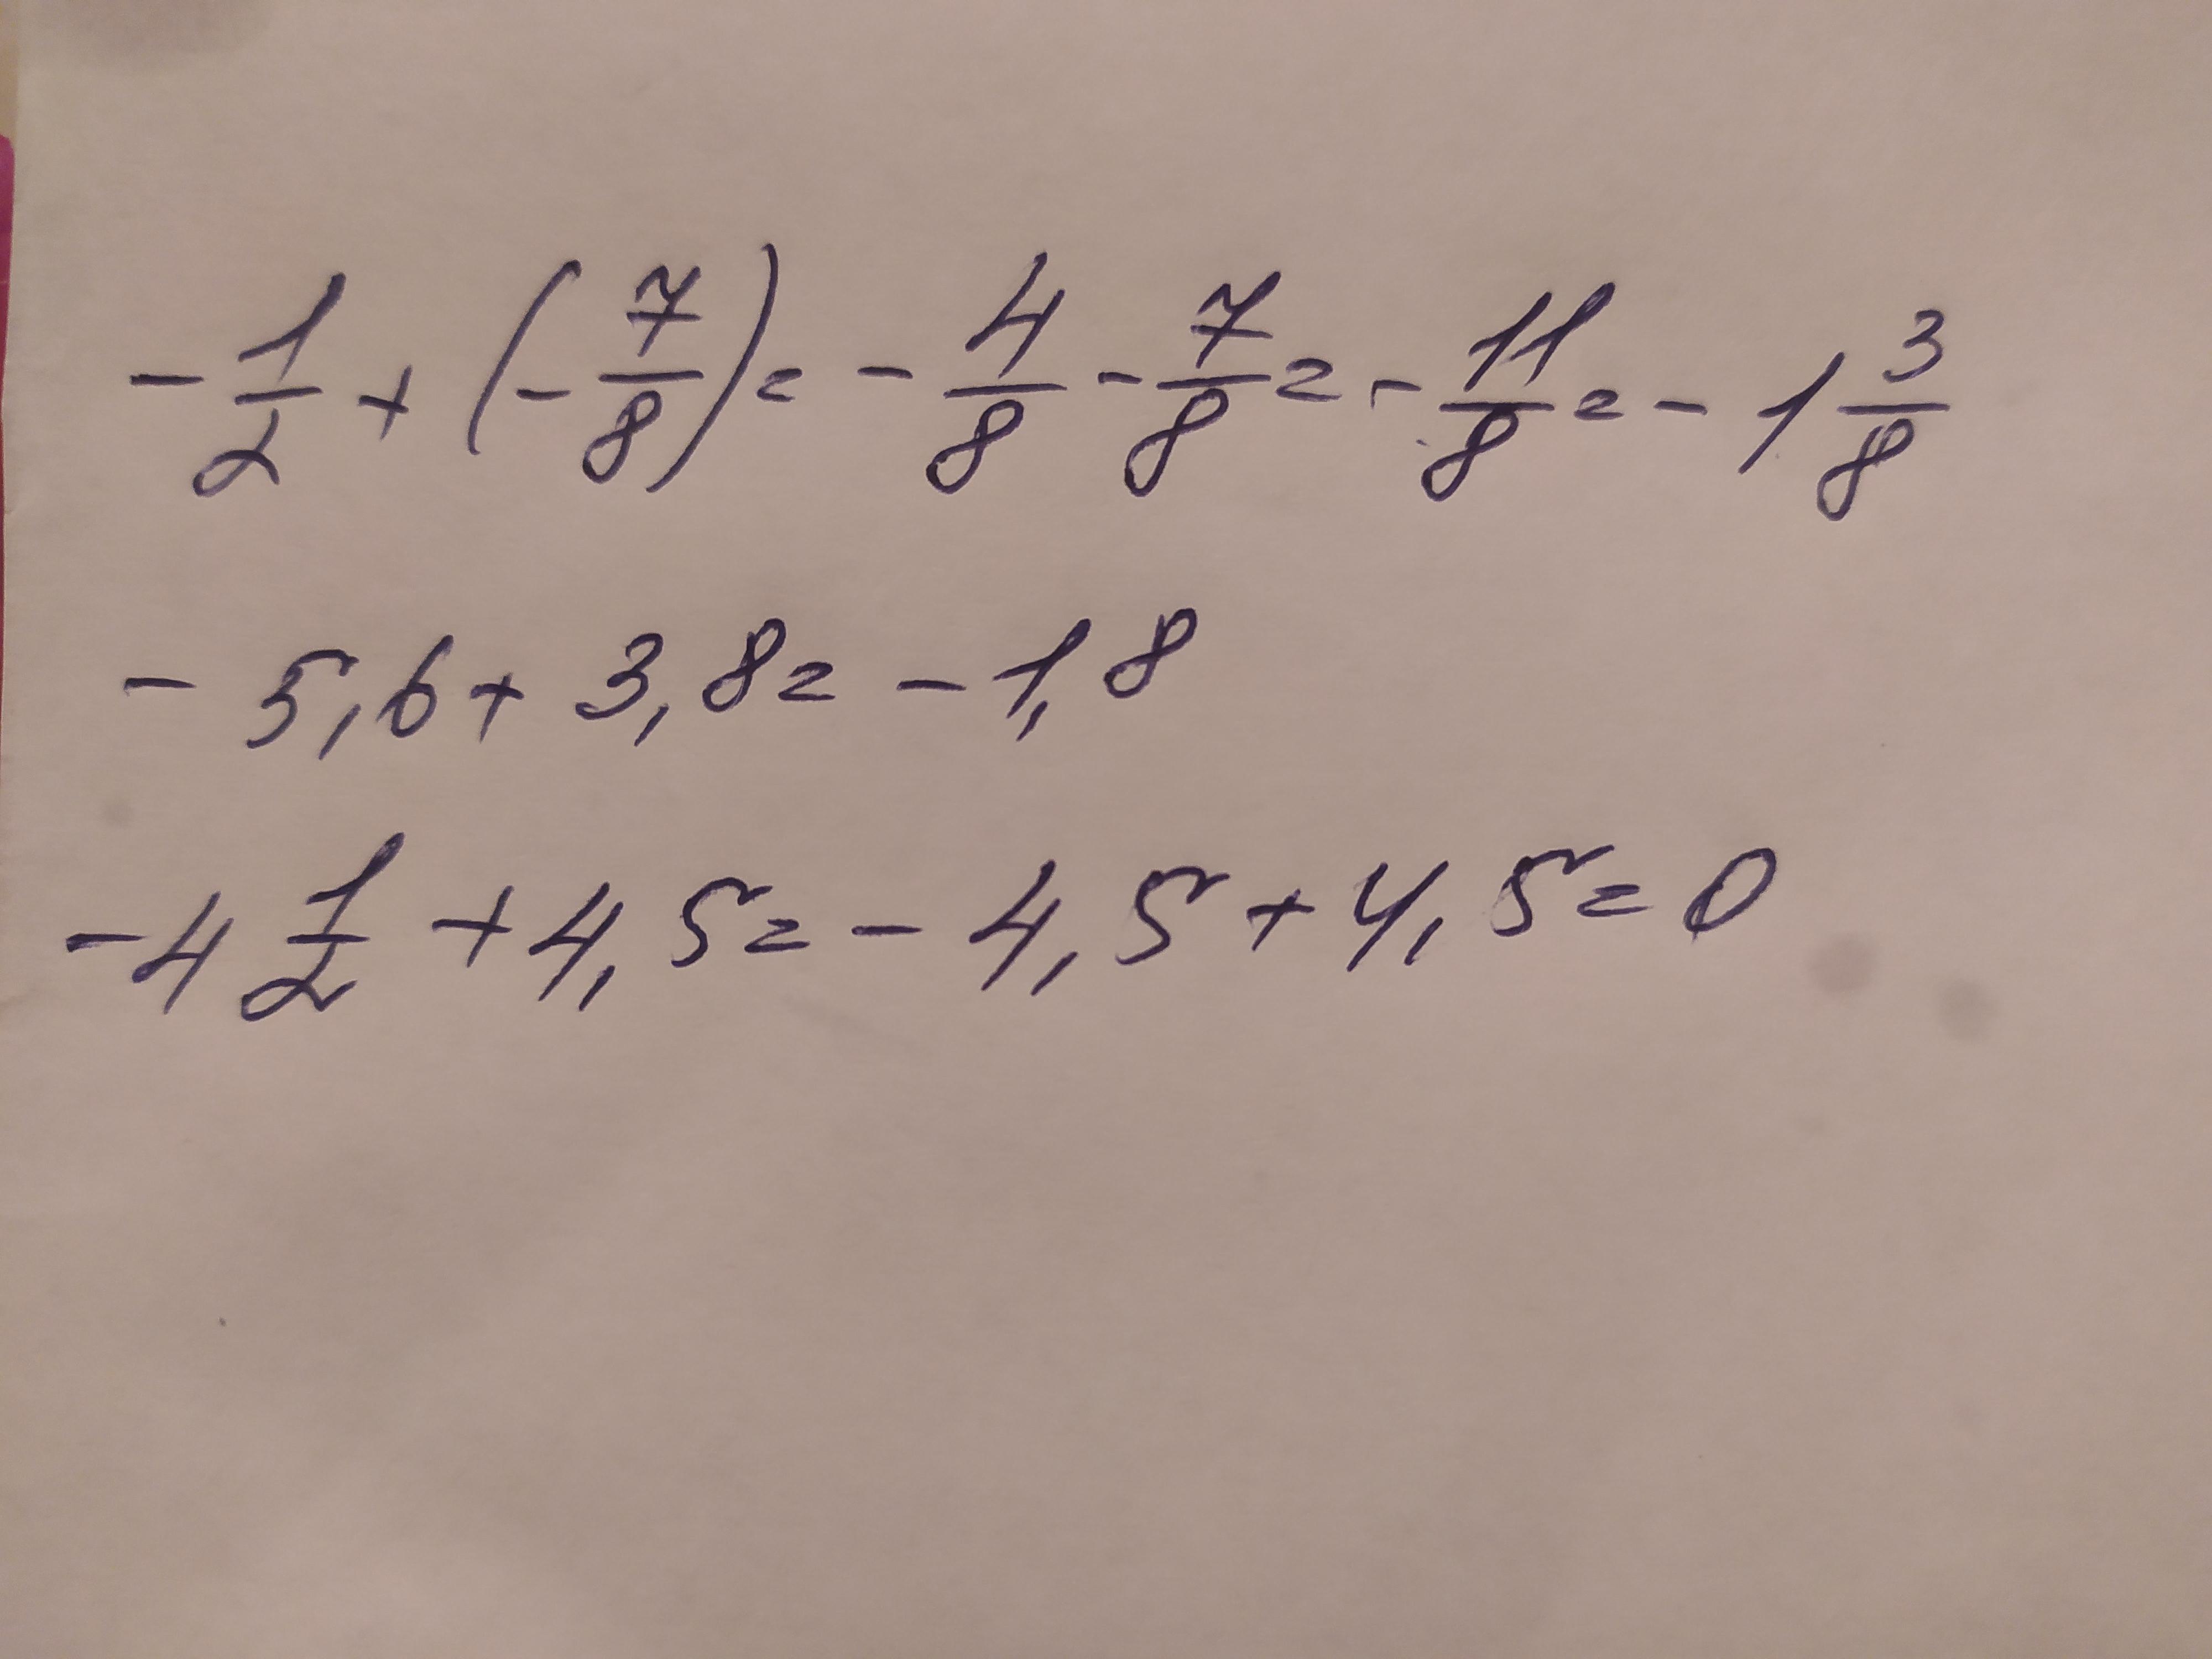 -1/2 + (-7/8) = -4/8 - 7/8 = -11/8 = -1 3/8
-5,6 + 3,8 = -1,8
-4 1/2 + 4,5 = -4,5 + 4,5 = 0